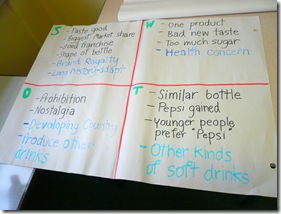 S - Taste good
- Biggest Market share
- Good franchise
- Shape of bottle
- Brand Royalty
- Long history → adapt
W - One product
- Bad new taste
- Too much sugar
- Health concern
O - Prohibition
- Nostalgia
- Developing Country
- Produce other
drinks
T - Similar bottle
- Pepsi gained
- younger people
prefer "Pepsi"
- Other kinds
of soft drinks